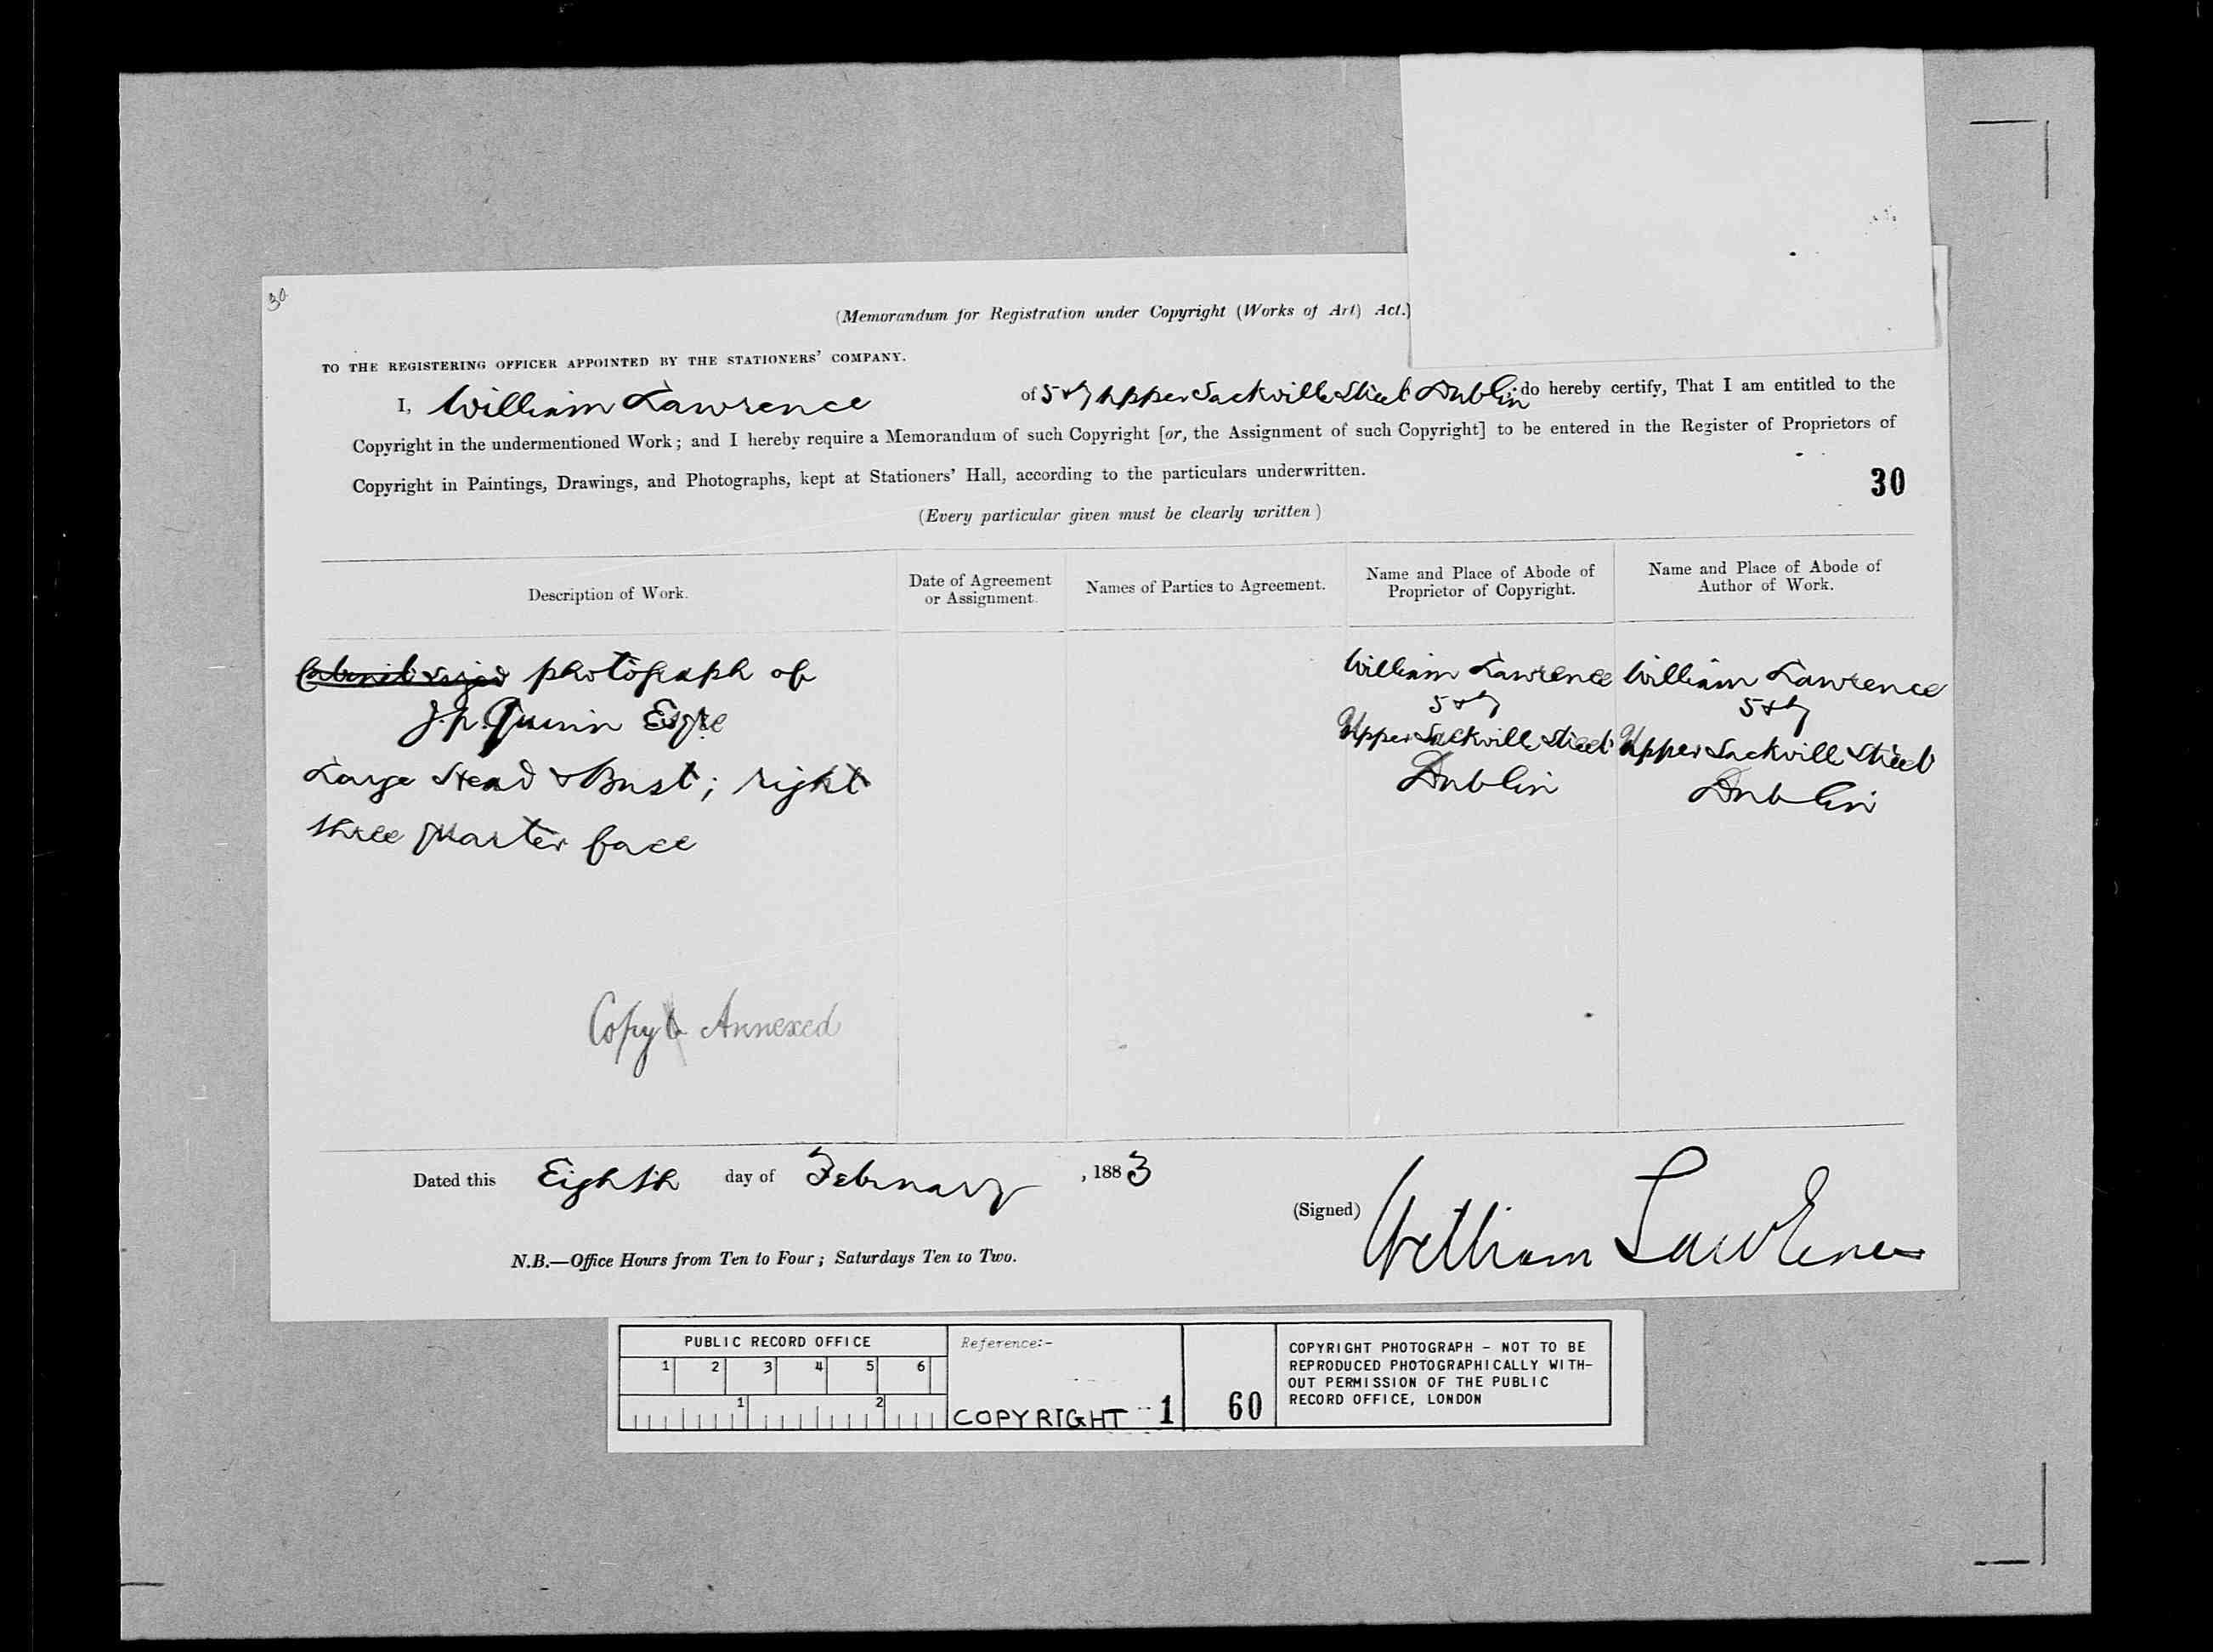 30
(Memorandum for Registration under Copyright (Works of Art) Act.)
TO THE REGISTERING OFFICER APPOINTED BY THE STATIONERS' COMPANY.
I, William Lawrence of 5 & 7 Upper Sackville Street Dublin do hereby certify, That I am entitled to the
Copyright in the undermentioned Work; and I hereby require a Memorandum of such Copyright [or, the Assignment of such Copyright] to be entered in the Register of Proprietors of
Copyright in Paintings, Drawings, and Photographs, kept at Stationers' Hall, according to the particulars underwritten.
30
(Every particular given must be clearly written)
Description of Work.
Date of Agreement
or Assignment.
Names of Parties to Agreement.
Name and Place of Abode of
Proprietor of Copyright.
Name and Place of Abode of
Author of Work.
Cabinet sized photograph of
J.P. Quinn Esqre
Large Head & Bust; right
three quarter face
Copy Annexed
William Lawrence
5 & 7
Upper Sackville Street
Dublin
William Lawrence
5 & 7
Upper Sackville Street
Dublin
Dated this Eighth day of February, 1883
(Signed) William Lawrence
N.B.—Office Hours from Ten to Four; Saturdays Ten to Two.
PUBLIC RECORD OFFICE
1 2 3 4 5 6
1 2
Reference:-
COPYRIGHT 1
60
COPYRIGHT PHOTOGRAPH - NOT TO BE
REPRODUCED PHOTOGRAPHICALLY WITH-
OUT PERMISSION OF THE PUBLIC
RECORD OFFICE, LONDON